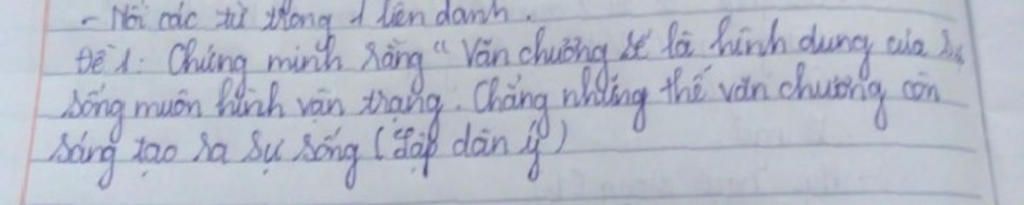 - Nối các từ trong 1 liên danh.
Đề 1: Chứng minh rằng "Văn chương sẽ là hình dung của sự
sống muôn hình vạn trạng. Chẳng những thế văn chương còn
sáng tạo ra sự sống (Lập dàn ý)